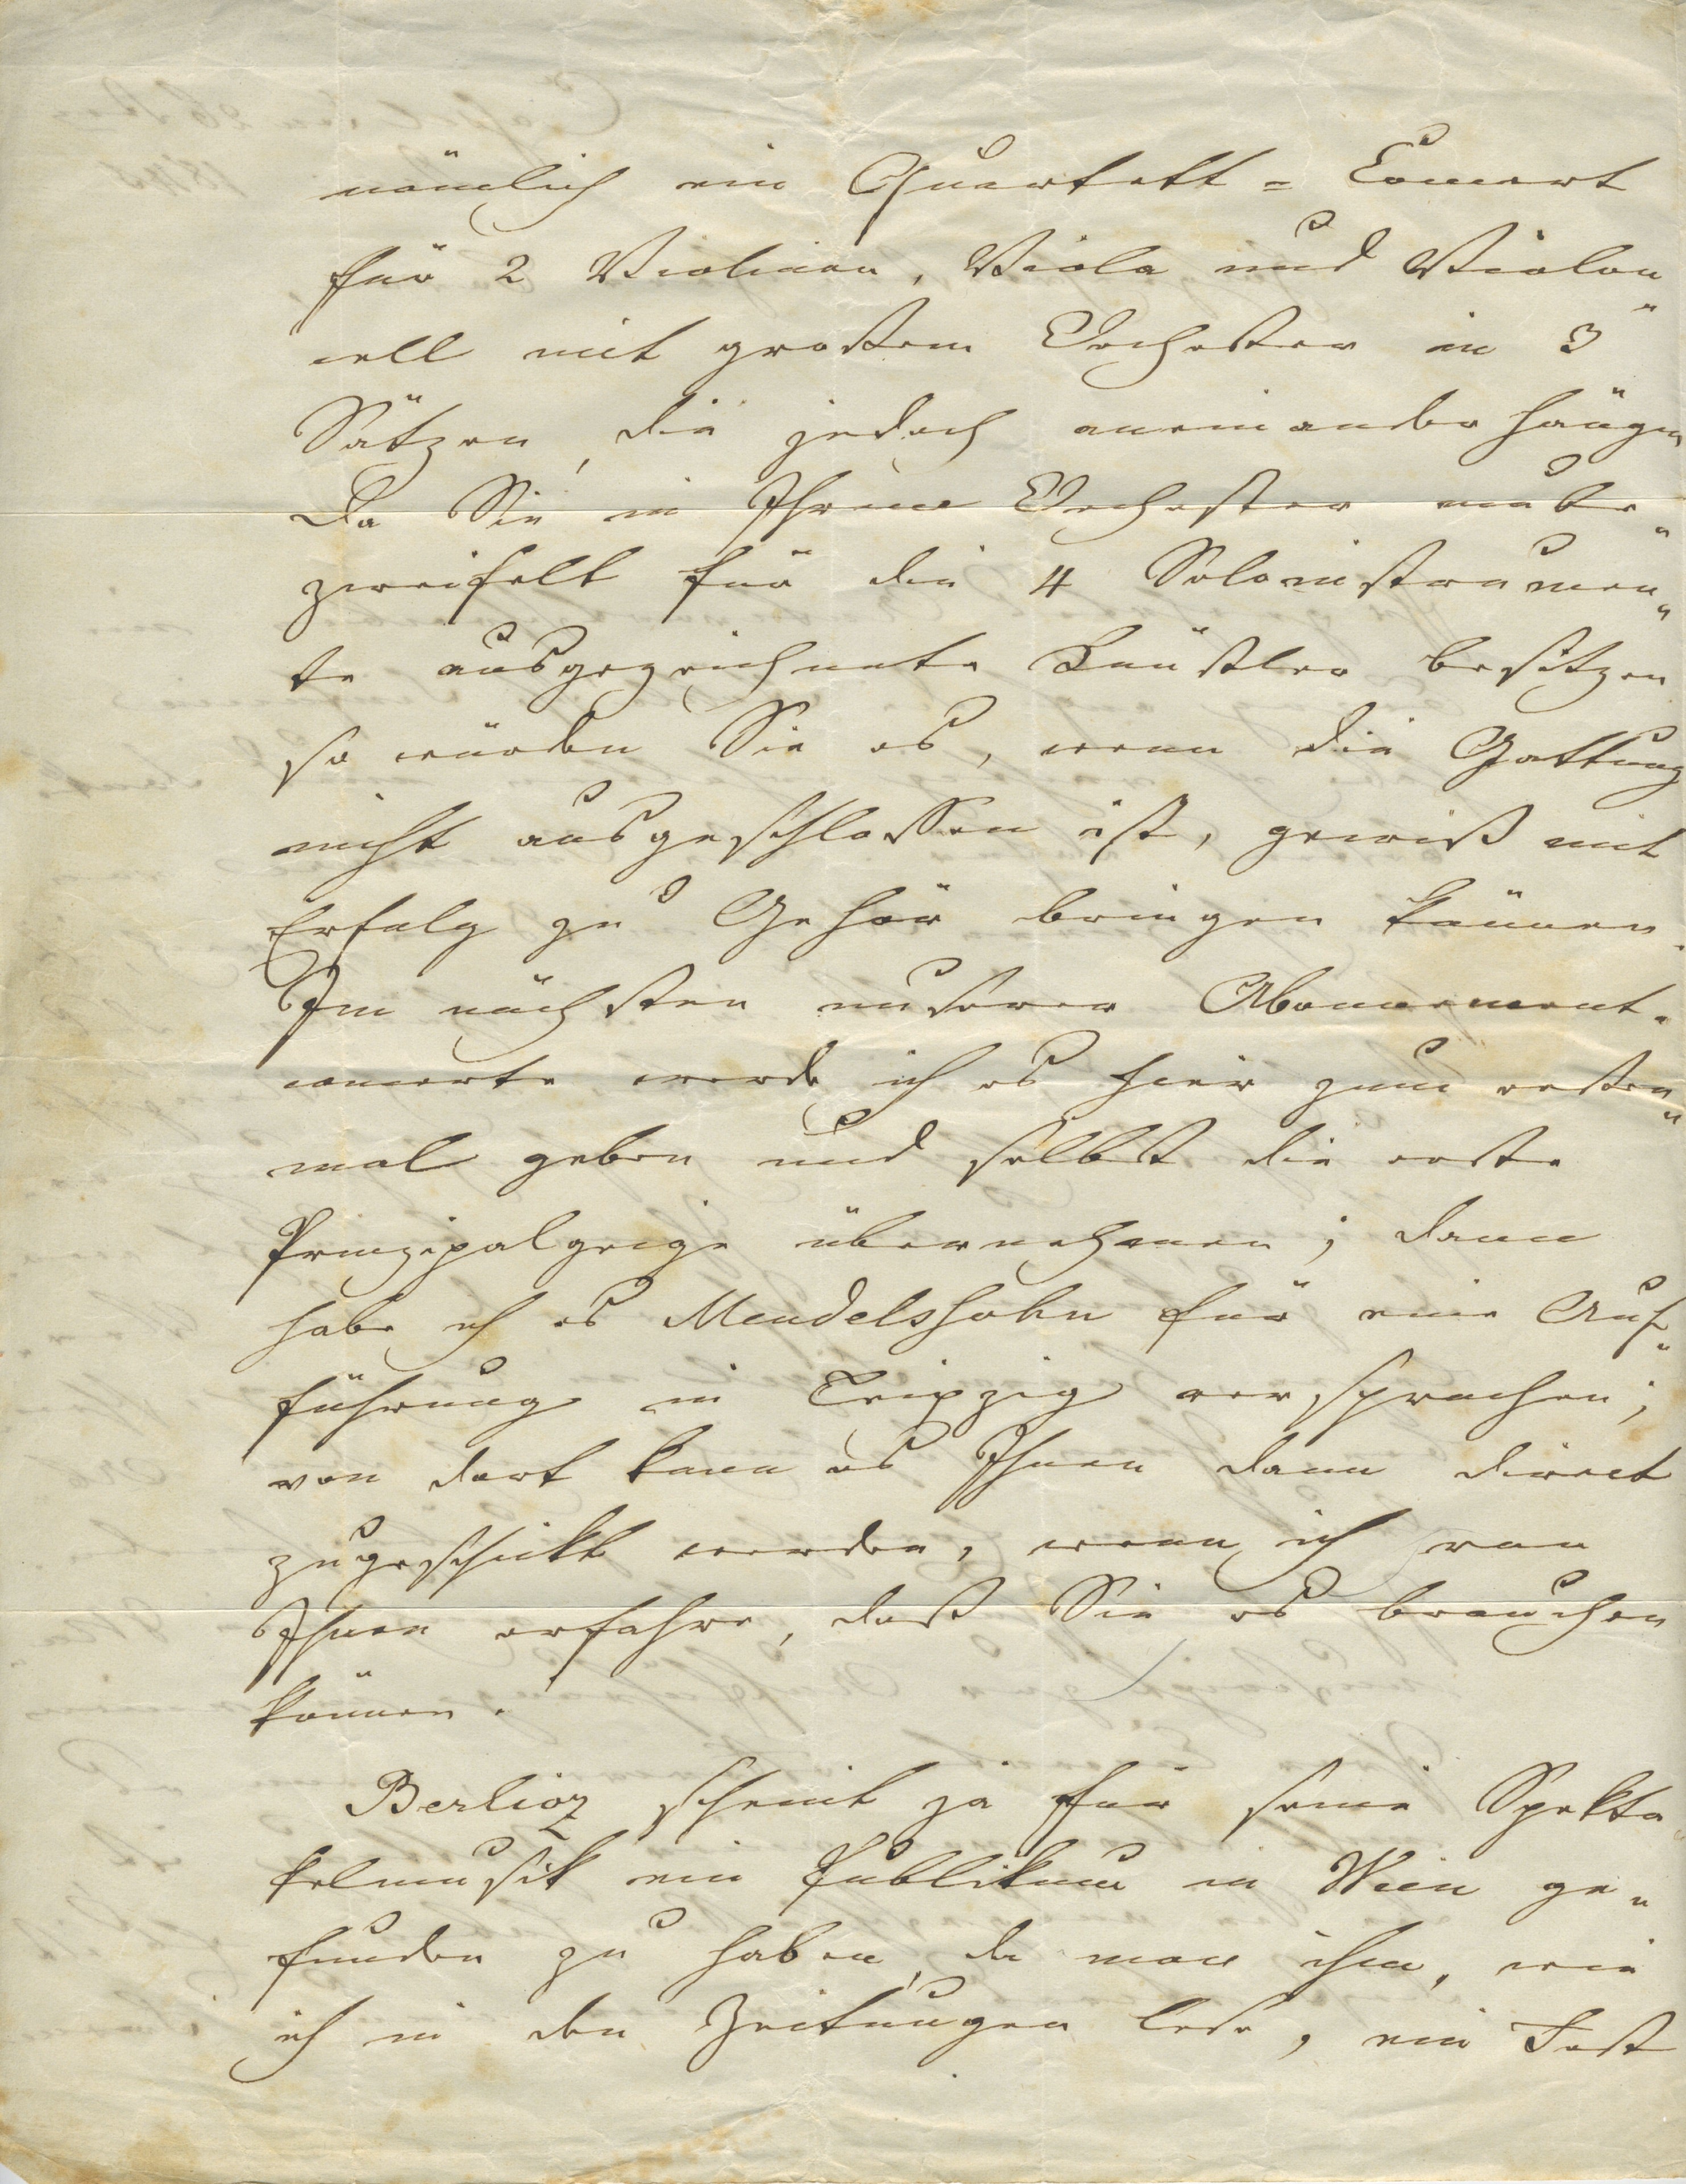 nämlich ein Quartett = Concert
für 2 Violinen, Viola und Violon
cell mit großem Orchester in 3
Sätzen, die jedoch aneinander hängen
Da Sie in Ihrem Orchester unbe„
zweifelt für die 4 Soloinstrumen„
te ausgezeichnete Künstler besitzen
so würden Sie es, wenn die Gattung
nicht ausgeschlossen ist, gewiß mit
Erfolg zu Gehör bringen können.
Im nächsten unserer Abonnement-
concerte werde ich es hier zum ersten„
mal geben und selbst die erste
Prinzipalgeige übernehmen; dann
habe ich es Mendelssohn für eine Auf„
führung in Leipzig versprochen;
von dort kann es Ihnen dann direct
zugeschickt werden, wenn ich von
Ihnen erfahre, daß Sie es brauchen
können.
Berlioz scheint ja für seine Spekta
kelmusik ein Publikum in Wien ge„
funden zu haben, da man ihm, wie
ich in den Zeitungen lese, ein Fest